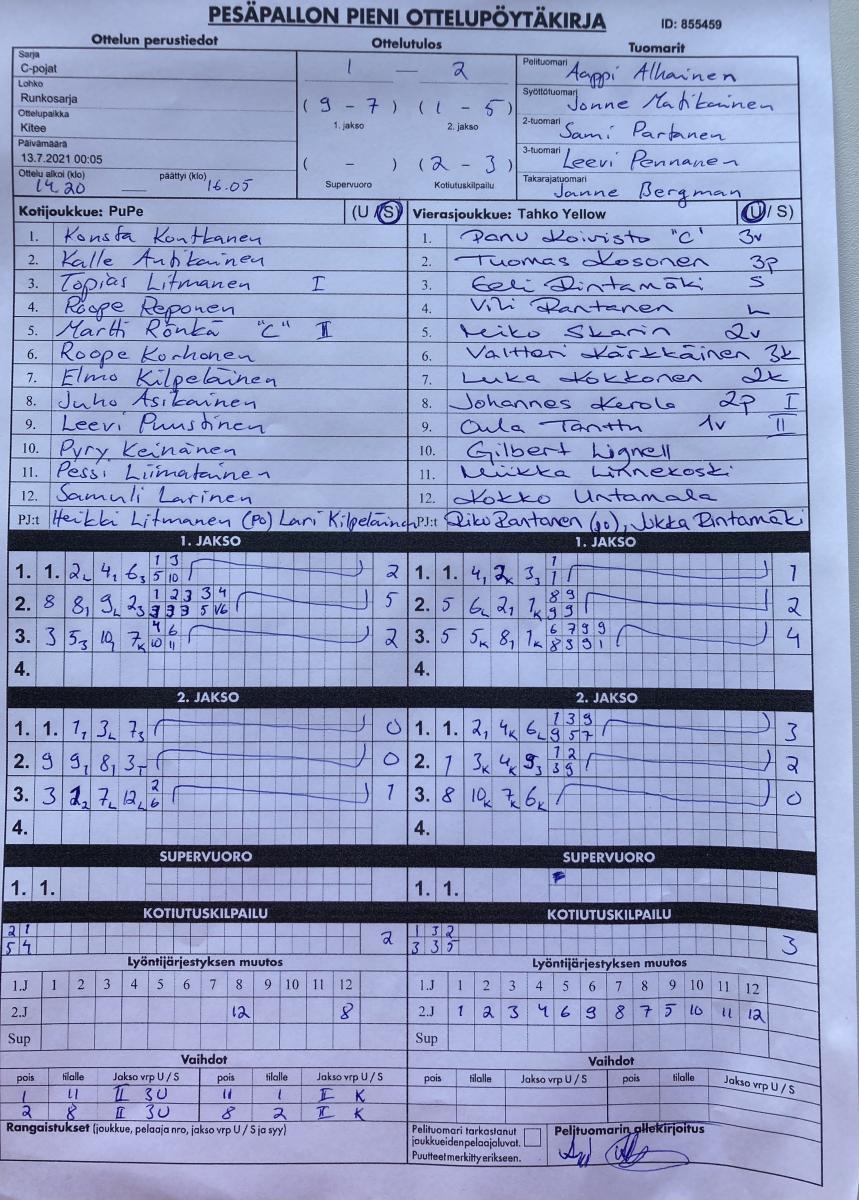 PESÄPALLON PIENI OTTELUPÖYTÄKIRJA
ID: 855459
Ottelun perustiedot
Sarja
C-pojat
Lohko
Runkosarja
Ottelupaikka
Kitee
Päivämäärä
13.7.2021 00:05
Ottelu alkoi (klo) päättyi (klo)
14.20 — 16.05
Ottelutulos
1 — 2
(9 - 7) (1 - 5)
1. jakso 2. jakso
( - ) (2 - 3)
Supervuoro Kotiutuskilpailu
Tuomarit
Pelituomari Aappi Alhainen
Syöttötuomari Jonne Matikainen
2-tuomari Sami Partanen
3-tuomari Leevi Pennanen
Takarajatuomari Janne Bergman
Kotijoukkue: PuPe (U / S)
1. Konsta Kontkanen
2. Kalle Antikainen
3. Topias Litmanen I
4. Roope Reponen
5. Martti Rönkä "C" II
6. Roope Korhonen
7. Elmo Kilpeläinen
8. Juho Asikainen
9. Leevi Puustinen
10. Pyry Keinänen
11. Pessi Liimatainen
12. Samuli Larinen
PJ:t Heikki Litmanen (PO) Lari Kilpeläinen
Vierasjoukkue: Tahko Yellow (U / S)
1. Panu Koivisto "C" 3v
2. Tuomas Kosonen 3p
3. Eeli Rintamäki S
4. Vili Rantanen L
5. Miko Skarin 2v
6. Valtteri Kärkkäinen 3k
7. Luka Kokkonen 2k
8. Johannes Kerola 2p I
9. Oula Tanttu 1v II
10. Gilbert Lignell
11. Miikka Linnekoski
12. Kokko Untamala
PJ:t Riko Rantanen (po), Jukka Rintamäki
1. JAKSO
1. 1. 2L 41 63 1 3 2
5 10
2. 8 81 9L 23 1 2 3 3 4 5
3 3 3 5
3. 3 53 10, 7K 4 6 2
10 11
4.
1. JAKSO
1. 1. 4, 2K 33 1 1
1
2. 5 6L 21 1K 8 9 2
9 9
3. 5 5K 81 1K 6 7 9 9 4
8 3 9 1
4.
2. JAKSO
1. 1. 11 3L 73 0
2. 9 91 81 3T 0
3. 3 7L 12L 2 1
6
4.
2. JAKSO
1. 1. 21 4K 6L 1 3 9 3
9 5 7
2. 1 3K 4K 93 1 2 2
3 9
3. 8 10K 7K 6K 0
4.
SUPERVUORO
1. 1.
SUPERVUORO
1. 1.
KOTIUTUSKILPAILU
2 1 2
5 4
KOTIUTUSKILPAILU
1 3 2 3
3 3 5
Lyöntijärjestyksen muutos
1.J 1 2 3 4 5 6 7 8 9 10 11 12
2.J 12 8
Sup
Lyöntijärjestyksen muutos
1.J 1 2 3 4 5 6 7 8 9 10 11 12
2.J 1 2 3 4 6 9 8 7 5 10 11 12
Sup
Vaihdot
pois tilalle Jakso vrp U / S pois tilalle Jakso vrp U / S
1 11 II 3U 11 1 II K
2 8 II 3U 8 2 II K
Vaihdot
pois tilalle Jakso vrp U / S pois tilalle Jakso vrp U / S
Rangaistukset (joukkue, pelaaja nro, jakso vrp U / S ja syy)
Pelituomari tarkastanut
joukkueiden pelaajaluvat.
Puutteet merkitty erikseen.
Pelituomarin allekirjoitus